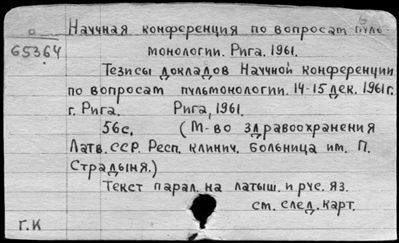 Научная конференция по вопросам пуль-
65364
монологии. Рига. 1961.
Тезисы докладов Научной конференции
по вопросам пульмонологии. 14-15 дек. 1961г.
г. Рига. Рига, 1961.
56с. (М-во здравоохранения
Латв. ССР. Респ. клинич. больница им. П.
Страдыня.)
Текст парал. на латыш. и рус. яз.
см. след. карт.
Г.К